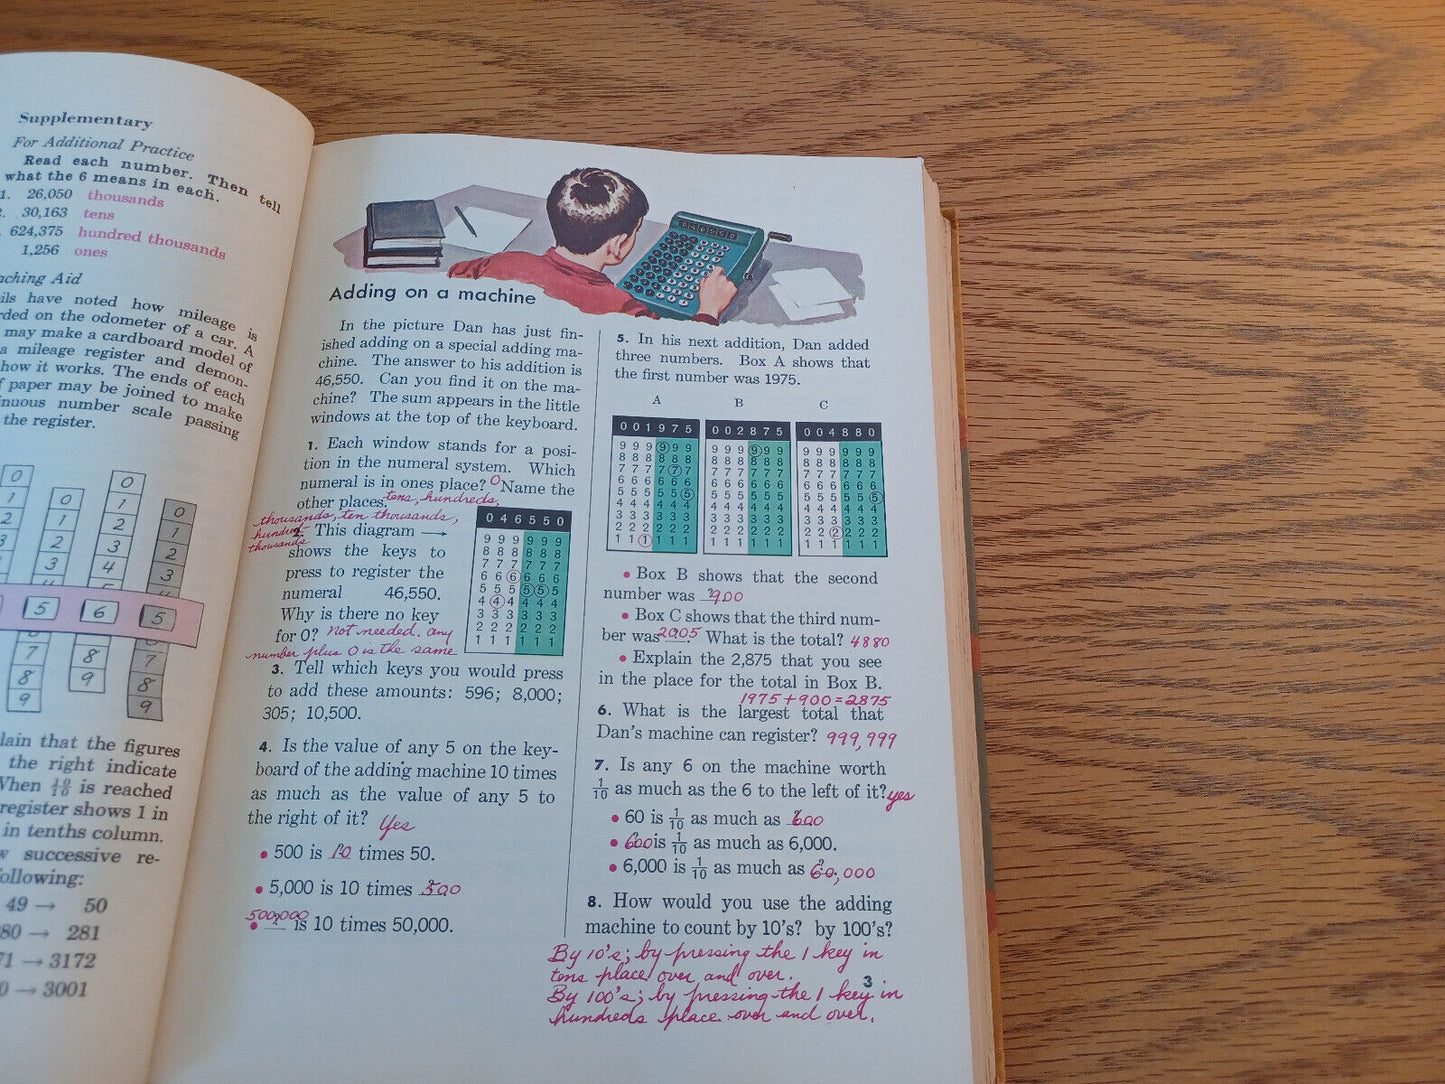 Supplementary
For Additional Practice
Read each number. Then tell
what the 6 means in each.
1. 26,050 thousands
30,163 tens
624,375 hundred thousands
1,256 ones
Aid
have noted how mileage is
on the odometer of a car. A
may make a cardboard model of
a mileage register and demon-
how it works. The ends of each
paper may be joined to make
number scale passing
the register.
0
1
2
3
0
1
2
3
4
0
1
2
3
4
0
1
2
3
5 6 5
7
8
9
8
9
7
8
9
that the figures
the right indicate
When 10/10 is reached
register shows 1 in
in tenths column.
successive re-
following:
49 → 50
280 → 281
71 → 3172
0 → 3001
Adding on a machine
In the picture Dan has just fin-
ished adding on a special adding ma-
chine. The answer to his addition is
46,550. Can you find it on the ma-
chine? The sum appears in the little
windows at the top of the keyboard.
1. Each window stands for a posi-
tion in the numeral system. Which
numeral is in ones place? 0 Name the
other places. tens, hundreds,
thousands, ten thousands,
hundred
thousands
2. This diagram →
shows the keys to
press to register the
numeral 46,550.
Why is there no key
for 0? Not needed. any
number plus 0 is the same
0 4 6 5 5 0
9 9 9 9 9 9
8 8 8 8 8 8
7 7 7 7 7 7
6 6 6 6 6 6
5 5 5 5 5 5
4 4 4 4 4 4
3 3 3 3 3 3
2 2 2 2 2 2
1 1 1 1 1 1
3. Tell which keys you would press
to add these amounts: 596; 8,000;
305; 10,500.
4. Is the value of any 5 on the key-
board of the adding machine 10 times
as much as the value of any 5 to
the right of it? Yes
• 500 is 10 times 50.
• 5,000 is 10 times 500
• 500,000 is 10 times 50,000.
5. In his next addition, Dan added
three numbers. Box A shows that
the first number was 1975.
A B C
0 0 1 9 7 5 0 0 2 8 7 5 0 0 4 8 8 0
9 9 9 9 9 9 9 9 9 9 9 9 9 9 9 9 9 9
8 8 8 8 8 8 8 8 8 8 8 8 8 8 8 8 8 8
7 7 7 7 7 7 7 7 7 7 7 7 7 7 7 7 7 7
6 6 6 6 6 6 6 6 6 6 6 6 6 6 6 6 6 6
5 5 5 5 5 5 5 5 5 5 5 5 5 5 5 5 5 5
4 4 4 4 4 4 4 4 4 4 4 4 4 4 4 4 4 4
3 3 3 3 3 3 3 3 3 3 3 3 3 3 3 3 3 3
2 2 2 2 2 2 2 2 2 2 2 2 2 2 2 2 2 2
1 1 1 1 1 1 1 1 1 1 1 1 1 1 1 1 1 1
• Box B shows that the second
number was 900
• Box C shows that the third num-
ber was 2005. What is the total? 4880
• Explain the 2,875 that you see
in the place for the total in Box B.
1975+900=2875
6. What is the largest total that
Dan's machine can register? 999,999
7. Is any 6 on the machine worth
1/10 as much as the 6 to the left of it? yes
• 60 is 1/10 as much as 600
• 600 is 1/10 as much as 6,000.
• 6,000 is 1/10 as much as 60,000
8. How would you use the adding
machine to count by 10's? by 100's?
By 10's; by pressing the 1 key in
tens place over and over.
By 100's; by pressing the 1 key in
hundreds place over and over.
3